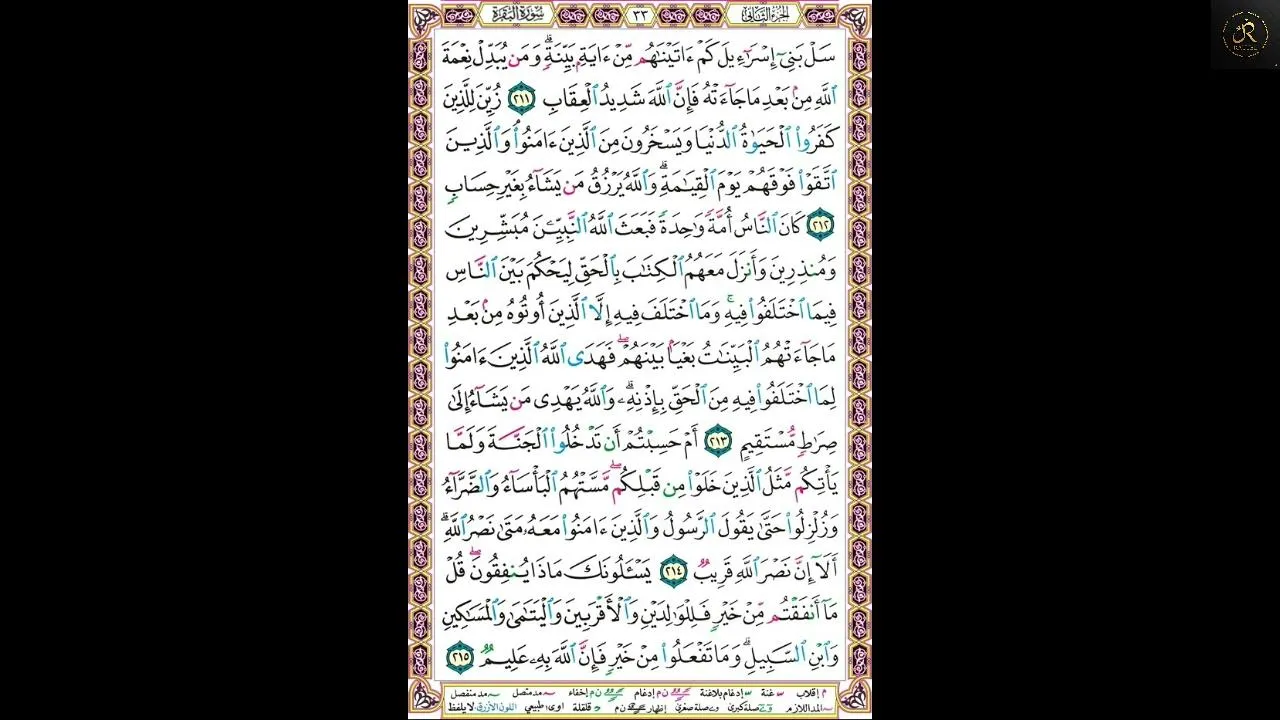 الجزء الثاني ٣٣ سورة البقرة
سَلْ بَنِىٓ إِسْرَٰٓءِيلَ كَمْ ءَاتَيْنَٰهُم مِّنْ ءَايَةٍۭ بَيِّنَةٍۢ ۗ وَمَن يُبَدِّلْ نِعْمَةَ
ٱللَّهِ مِنۢ بَعْدِ مَا جَآءَتْهُ فَإِنَّ ٱللَّهَ شَدِيدُ ٱلْعِقَابِ ٢١١ زُيِّنَ لِلَّذِينَ
كَفَرُوا۟ ٱلْحَيَوٰةُ ٱلدُّنْيَا وَيَسْخَرُونَ مِنَ ٱلَّذِينَ ءَامَنُوا۟ ۘ وَٱلَّذِينَ
ٱتَّقَوْا۟ فَوْقَهُمْ يَوْمَ ٱلْقِيَٰمَةِ ۗ وَٱللَّهُ يَرْزُقُ مَن يَشَآءُ بِغَيْرِ حِسَابٍۢ
٢١٢ كَانَ ٱلنَّاسُ أُمَّةً وَٰحِدَةً فَبَعَثَ ٱللَّهُ ٱلنَّبِيِّـۧنَ مُبَشِّرِينَ
وَمُنذِرِينَ وَأَنزَلَ مَعَهُمُ ٱلْكِتَٰبَ بِٱلْحَقِّ لِيَحْكُمَ بَيْنَ ٱلنَّاسِ
فِيمَا ٱخْتَلَفُوا۟ فِيهِ ۚ وَمَا ٱخْتَلَفَ فِيهِ إِلَّا ٱلَّذِينَ أُوتُوهُ مِنۢ بَعْدِ
مَا جَآءَتْهُمُ ٱلْبَيِّنَٰتُ بَغْيًۢا بَيْنَهُمْ ۖ فَهَدَى ٱللَّهُ ٱلَّذِينَ ءَامَنُوا۟
لِمَا ٱخْتَلَفُوا۟ فِيهِ مِنَ ٱلْحَقِّ بِإِذْنِهِۦ ۗ وَٱللَّهُ يَهْدِى مَن يَشَآءُ إِلَىٰ
صِرَٰطٍۢ مُّسْتَقِيمٍ ٢١٣ أَمْ حَسِبْتُمْ أَن تَدْخُلُوا۟ ٱلْجَنَّةَ وَلَمَّا
يَأْتِكُم مَّثَلُ ٱلَّذِينَ خَلَوْا۟ مِن قَبْلِكُم ۖ مَّسَّتْهُمُ ٱلْبَأْسَآءُ وَٱلضَّرَّآءُ
وَزُلْزِلُوا۟ حَتَّىٰ يَقُولَ ٱلرَّسُولُ وَٱلَّذِينَ ءَامَنُوا۟ مَعَهُۥ مَتَىٰ نَصْرُ ٱللَّهِ ۗ
أَلَآ إِنَّ نَصْرَ ٱللَّهِ قَرِيبٌۭ ٢١٤ يَسْـَٔلُونَكَ مَاذَا يُنفِقُونَ ۖ قُلْ
مَآ أَنفَقْتُم مِّنْ خَيْرٍۢ فَلِلْوَٰلِدَيْنِ وَٱلْأَقْرَبِينَ وَٱلْيَتَٰمَىٰ وَٱلْمَسَٰكِينِ
وَٱبْنِ ٱلسَّبِيلِ ۗ وَمَا تَفْعَلُوا۟ مِنْ خَيْرٍۢ فَإِنَّ ٱللَّهَ بِهِۦ عَلِيمٌۭ ٢١٥
م إقلاب غنة إدغام بلاغنة ن م إدغام ن م إخفاء مد متصل مد منفصل
المد اللازم صلة كبرى صلة صغرى إظهار ن م قلقلة اوى طبيعي اللون الأزرق لا يلفظ